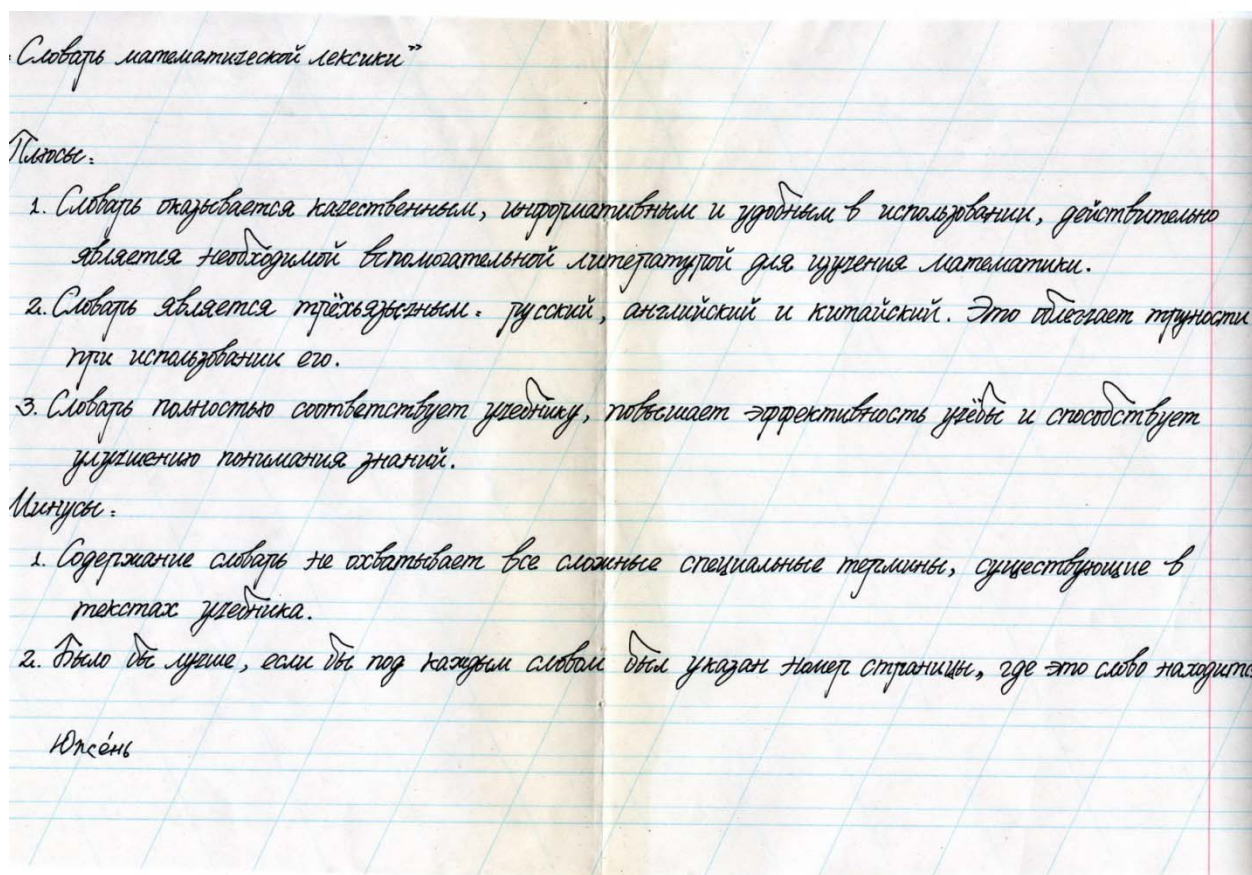 Словарь математической лексики”
Плюсы:
1. Словарь оказывается качественным, информативным и удобным в использовании, действительно
является необходимой вспомогательной литературой для изучения математики.
2. Словарь является трёхъязычным: русский, английский и китайский. Это облегчает трудности
при использовании его.
3. Словарь полностью соответствует учебнику, повышает эффективность учёбы и способствует
улучшению понимания знаний.
Минусы:
1. Содержание словарь не охватывает все сложные специальные термины, существующие в
текстах учебника.
2. Было бы лучше, если бы под каждым словом был указан номер страницы, где это слово находитс